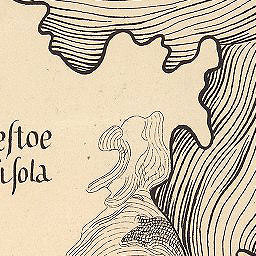 eſtoe
iſola